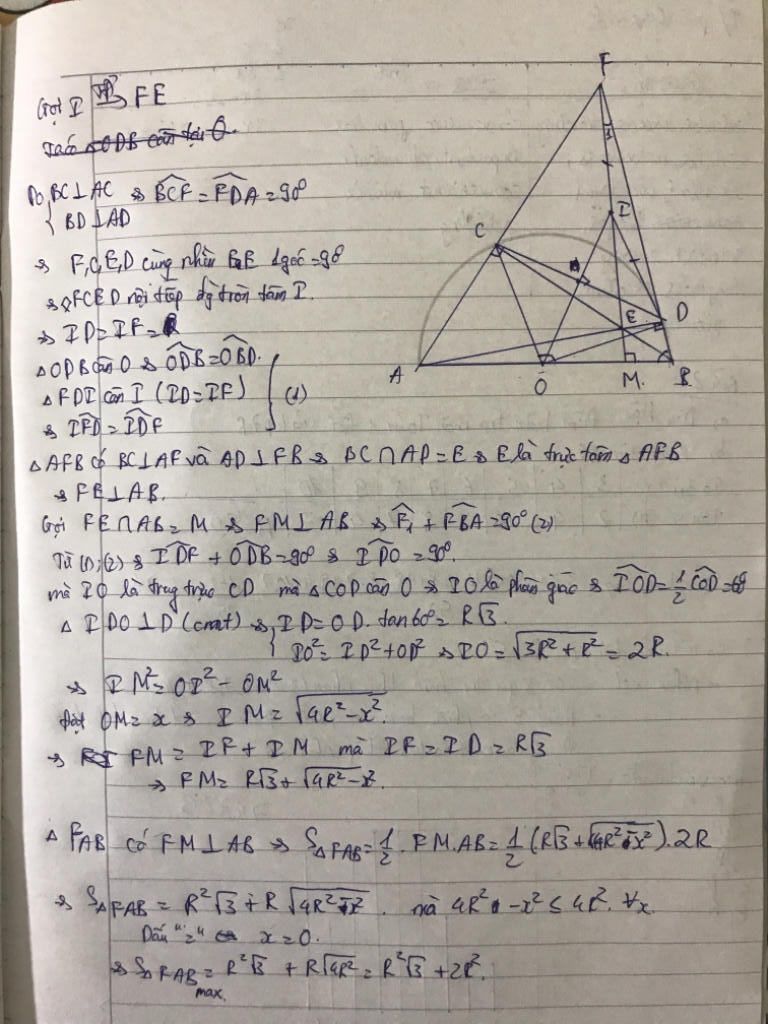 Gọi I FE
Ta có △ODB cân tại O.
Do BC⊥AC ⇒ \widehat{BCF} = \widehat{FDA} = 90°
BD⊥AD
⇒ F,C,E,D cùng nhìn FE 1 góc = 90
⇒ ◊FCED nội tiếp đg tròn tâm I.
⇒ ID = IF =
△ODB cân O ⇒ \widehat{ODB} = \widehat{OBD}.
△FDI cân I (ID = IF) (1)
⇒ \widehat{IFD} = \widehat{IDF}
△AFB có BC⊥AF và AD⊥FB ⇒ BC∩AD = E ⇒ E là trực tâm △AFB
⇒ FE⊥AB.
Gọi FE∩AB = M ⇒ FM⊥AB ⇒ \widehat{F_1} + \widehat{FBA} = 90° (2)
Từ (1);(2) ⇒ \widehat{IDF} + \widehat{ODB} = 90° ⇒ \widehat{IDO} = 90°.
mà IO là trung trực CD mà △COD cân O ⇒ IO là phân giác ⇒ \widehat{IOD} = \frac{1}{2}\widehat{COD} = 60
△IDO⊥D (cmt) ⇒ ID = OD.tan60° = R√3.
IO² = ID² + OD² ⇒ IO = √(3R² + R²) = 2R.
⇒ IM² = OI² - OM²
Đặt OM = x ⇒ IM = √(4R² - x²).
⇒ FM = IF + IM mà IF = ID = R√3
⇒ FM = R√3 + √(4R² - x²).
△FAB có FM⊥AB ⇒ S△FAB = \frac{1}{2}.FM.AB = \frac{1}{2}(R√3 + √(4R² - x²)).2R
⇒ S△FAB = R²√3 + R√(4R² - x²). mà 4R² - x² ≤ 4R². ∀x.
Dấu "=" ⇔ x = 0.
⇒ S△FAB max = R²√3 + R√4R² = R²√3 + 2R².
F
3
I
C
E
D
A
O
M.
B.